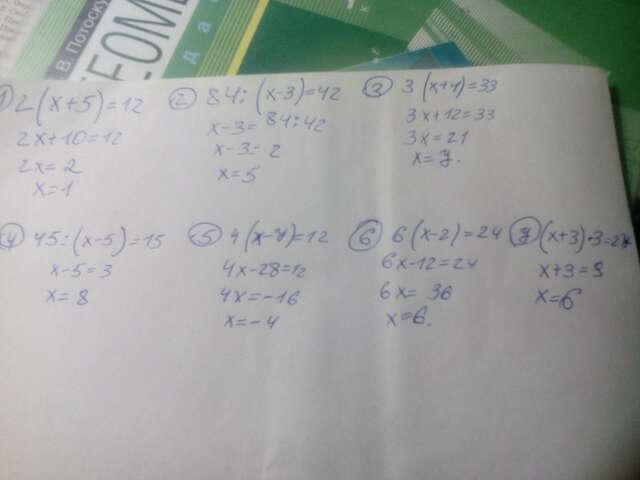 В. Потоску
ГЕОМЕ
① 2(x+5)=12
2x+10=12
2x=2
x=1
② 84:(x-3)=42
x-3=84:42
x-3=2
x=5
③ 3(x+4)=33
3x+12=33
3x=21
x=7.
④ 45:(x-5)=15
x-5=3
x=8
⑤ 4(x-7)=12
4x-28=12
4x=-16
x=-4
⑥ 6(x-2)=24
6x-12=24
6x=36
x=6.
⑦ (x+3)·3=27
x+3=9
x=6